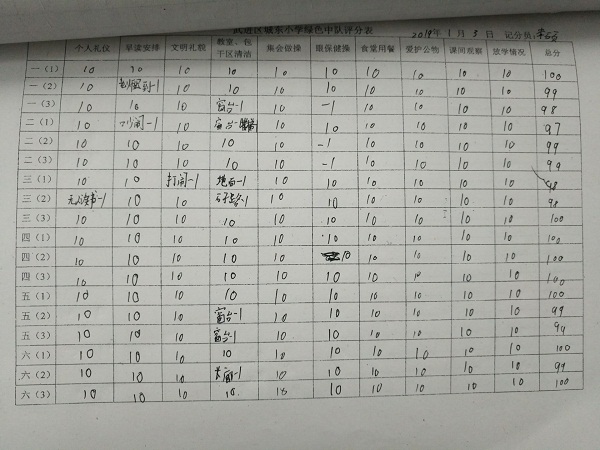 武进区城东小学绿色中队评分表 2019年1月3日 记分员:
个人礼仪 早读安排 文明礼貌 教室、包干区清洁 集会做操 眼保健操 食堂用餐 爱护公物 课间观察 放学情况 总分
一(1) 10 10 10 10 10 10 10 10 10 10 100
一(2) 10 -1 10 10 10 10 10 10 10 10 99
一(3) 10 10 10 窗台-1 10 -1 10 10 10 10 98
二(1) 10 -1 10 窗台-1 10 10 10 10 10 10 97
二(2) 10 10 10 10 10 -1 10 10 10 10 99
二(3) 10 10 10 10 10 -1 10 10 10 10 99
三(1) 10 10 打闹-1 地面-1 10 10 10 10 10 10 98
三(2) -1 10 10 -1 10 10 10 10 10 10 98
三(3) 10 10 10 10 10 10 10 10 10 10 100
四(1) 10 10 10 10 10 10 10 10 10 10 100
四(2) 10 10 10 10 10 10 10 10 10 10 100
四(3) 10 10 10 10 10 10 10 10 10 10 100
五(1) 10 10 10 10 10 10 10 10 10 10 100
五(2) 10 10 10 窗台-1 10 10 10 10 10 10 99
五(3) 10 10 10 窗台-1 10 10 10 10 10 10 99
六(1) 10 10 10 10 10 10 10 10 10 10 100
六(2) 10 10 10 -1 10 10 10 10 10 10 99
六(3) 10 10 10 10 10 10 10 10 10 10 100